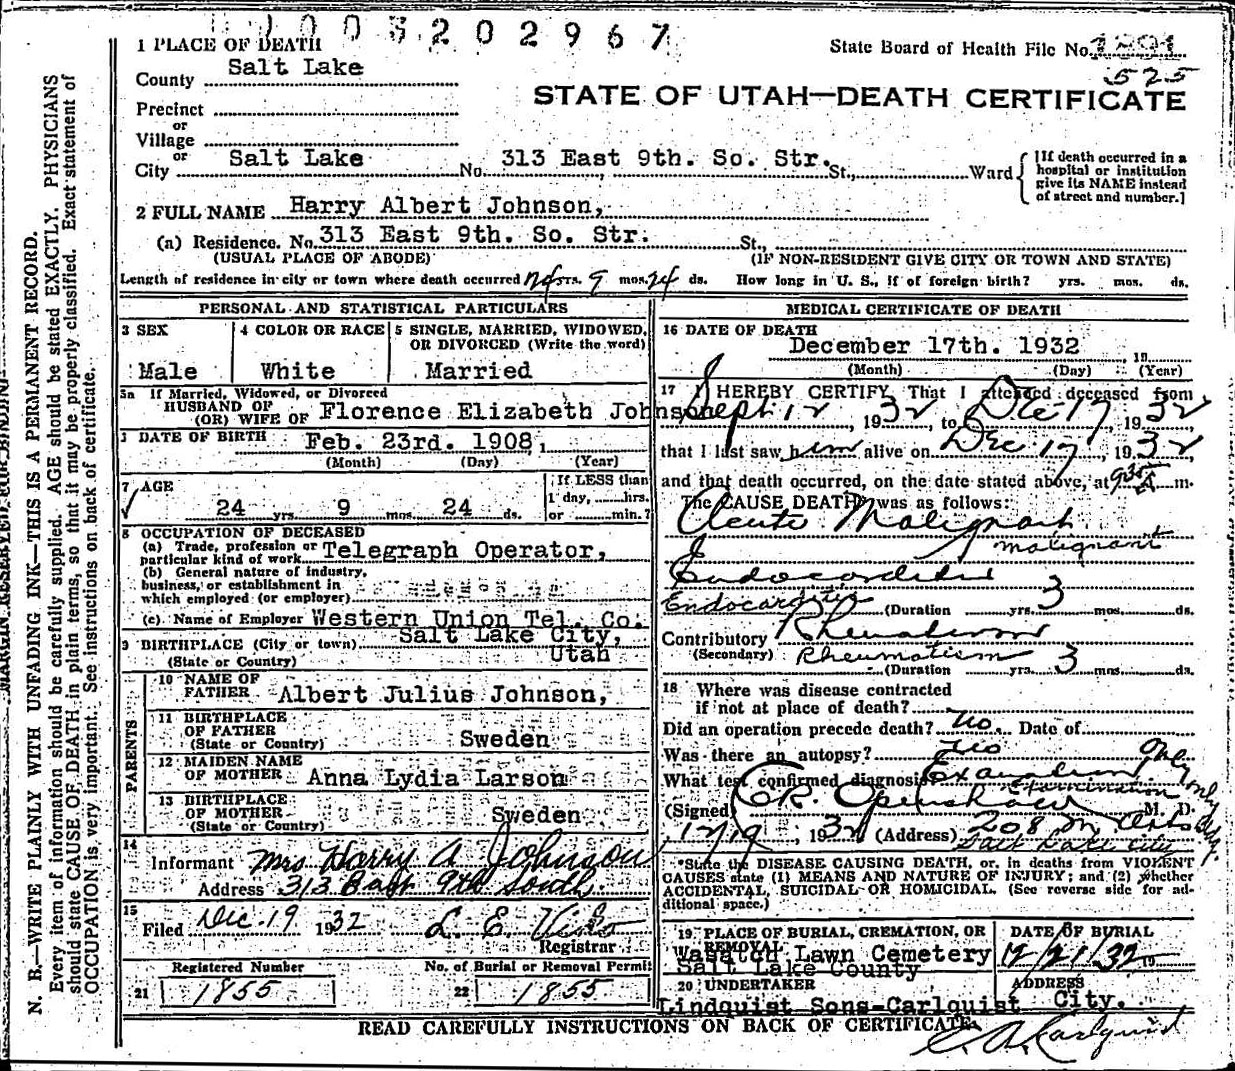 1003202967
1 PLACE OF DEATH
State Board of Health File No. 1891
525
County Salt Lake
STATE OF UTAH—DEATH CERTIFICATE
Precinct
or
Village
or
City Salt Lake No. 313 East 9th. So. Str. St., Ward
[If death occurred in a hospital or institution give its NAME instead of street and number.]
2 FULL NAME Harry Albert Johnson,
(a) Residence. No. 313 East 9th. So. Str. St.,
(USUAL PLACE OF ABODE) (IF NON-RESIDENT GIVE CITY OR TOWN AND STATE)
Length of residence in city or town where death occurred 24 yrs. 9 mos. 24 ds. How long in U. S., if of foreign birth? yrs. mos. ds.
PERSONAL AND STATISTICAL PARTICULARS
3 SEX
Male
4 COLOR OR RACE
White
5 SINGLE, MARRIED, WIDOWED,
OR DIVORCED (Write the word)
Married
5a If Married, Widowed, or Divorced
HUSBAND OF
(OR) WIFE OF Florence Elizabeth Johnson
DATE OF BIRTH Feb. 23rd. 1908,
(Month) (Day) (Year)
7 AGE
24 yrs. 9 mos. 24 ds.
If LESS than
1 day, hrs.
or min.?
8 OCCUPATION OF DECEASED
(a) Trade, profession or
particular kind of work Telegraph Operator,
(b) General nature of industry,
business, or establishment in
which employed (or employer)
(c) Name of Employer Western Union Tel. Co.
9 BIRTHPLACE (City or town) Salt Lake City,
(State or Country) Utah
PARENTS
10 NAME OF
FATHER Albert Julius Johnson,
11 BIRTHPLACE
OF FATHER
(State or Country) Sweden
12 MAIDEN NAME
OF MOTHER Anna Lydia Larson
13 BIRTHPLACE
OF MOTHER
(State or Country) Sweden
14
Informant Mrs Harry A Johnson
Address 313 East 9th South.
15
Filed Dec. 19 1932 L. E.
Registrar
Registered Number
21 1855
No. of Burial or Removal Permit
22 1855
MEDICAL CERTIFICATE OF DEATH
16 DATE OF DEATH
December 17th. 1932 19
(Month) (Day) (Year)
17 I HEREBY CERTIFY That I attended deceased from
Sept 12, 1932, to Dec 17, 1932
that I last saw him alive on Dec 17, 1932
and that death occurred, on the date stated above, at 9:35 A m.
The CAUSE DEATH was as follows:
Acute Malignant
malignant
Endocarditis
Endocarditis (Duration yrs. 3 mos. ds.
Contributory Rheumatism
(Secondary) Rheumatism
(Duration yrs. 3 mos. ds.
18 Where was disease contracted
if not at place of death?
Did an operation precede death? No. Date of
Was there an autopsy? No
What test confirmed diagnosis Examination Only
Examination only
(Signed) E.R. Openshaw M. D.
12/19, 1932 (Address) 208 Med Arts Bldg.
Salt Lake City
*State the DISEASE CAUSING DEATH, or, in deaths from VIOLENT
CAUSES state (1) MEANS AND NATURE OF INJURY; and (2) whether
ACCIDENTAL, SUICIDAL OR HOMICIDAL. (See reverse side for ad-
ditional space.)
19 PLACE OF BURIAL, CREMATION, OR
REMOVAL
Wasatch Lawn Cemetery
Salt Lake County
DATE OF BURIAL
12/21/32 19
20 UNDERTAKER
Lindquist Sons-Carlquist
ADDRESS
City.
READ CAREFULLY INSTRUCTIONS ON BACK OF CERTIFICATE.
C. A. Carlquist
MARGIN RESERVED FOR BINDING
N. B.—WRITE PLAINLY WITH UNFADING INK—THIS IS A PERMANENT RECORD.
Every item of information should be carefully supplied. AGE should be stated EXACTLY. PHYSICIANS
should state CAUSE OF DEATH in plain terms, so that it may be properly classified. Exact statement of
OCCUPATION is very important. See instructions on back of certificate.